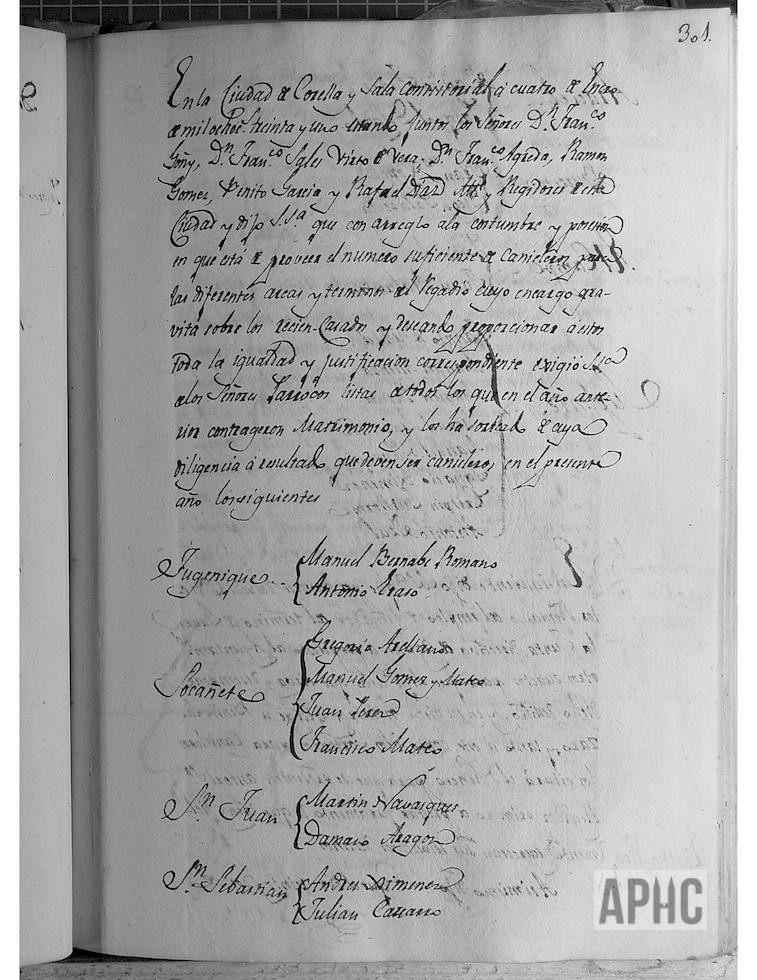 301.
En la Ciudad de Corella y Sala Consistorial á cuatro de Enero
de mil ochoc.s treinta y uno estando juntos los Señores D.n Fran.co
Goñy, D.n Fran.co Sales Virto de Vera, D.n Fran.co Agreda, Ramon
Gomez, Benito Garcia y Rafael Diaz Alc.e y Regidores de esta
Ciudad y dijo S.S.a que con arreglo ala costumbre y posesion
en que está de proveer el numero suficiente de canieleros para
las diferentes areas y terminos del Regadio cuyo encargo gra-
vita sobre los recien-Casados y deseando proporcionar á estos
toda la igualdad y justificacion correspondiente exigió S.S.a
de los Señores Parrocos listas de todos los que en el año ante-
rior contrageron Matrimonio, y los ha sorteado de cuya
diligencia á resultado que deven ser canieleros en el presente
año los siguientes
Fugenique
Manuel Bernabe Romano
Antonio Eraso
Gregorio Arellano
Manuel Gomez y Mateo
Pocañete
Juan Perez
Francisco Mateo
S.n Juan
Martin Navasques
Damaso Aragon
S.n Sebastian
Andres Ximenez
Julian Catarro
APHC